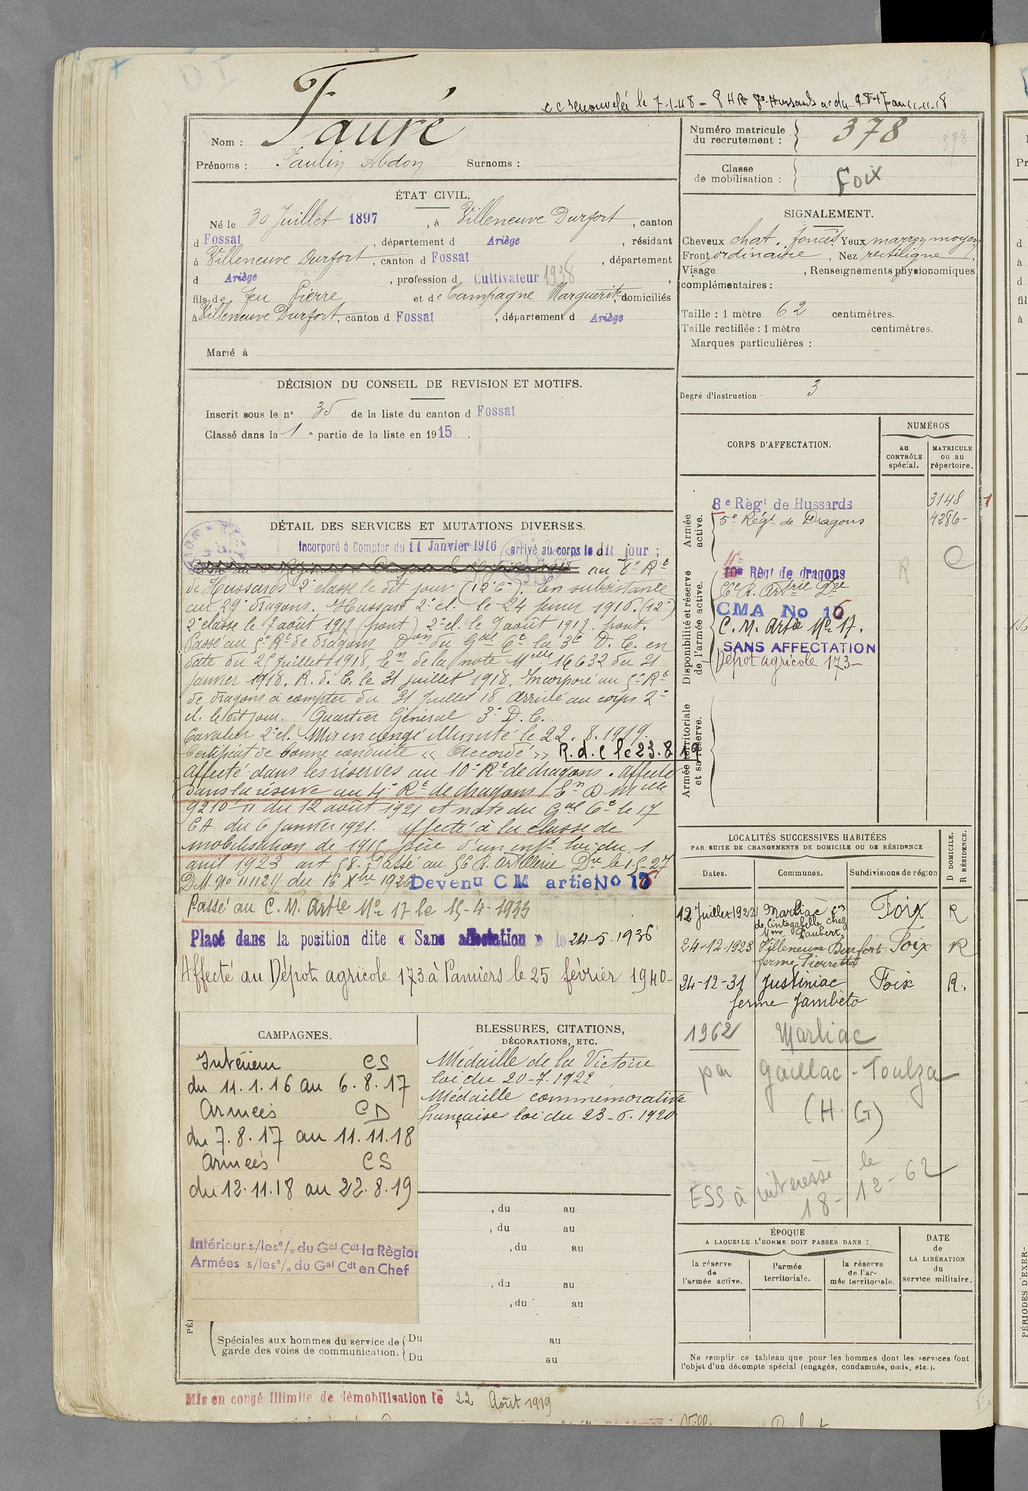 Fauré
Nom :
Prénoms : Paulin Abdon Surnoms :
Numéro matricule du recrutement : 378
Classe de mobilisation : Foix
ÉTAT CIVIL.
Né le 30 Juillet 1897, à Villeneuve Durfort, canton
d Fossat, département d Ariège, résidant
à Villeneuve Durfort, canton d Fossat, département
d Ariège, profession d Cultivateur 1938
fils de feu Pierre et de Campagne Marguerite domiciliés
à Villeneuve Durfort, canton d Fossat, département d Ariège
Marié à
SIGNALEMENT.
Cheveux chat. foncés Yeux marron moyen
Front ordinaire, Nez rectiligne,
Visage , Renseignements physionomiques
complémentaires :
Taille : 1 mètre 62 centimètres.
Taille rectifiée : 1 mètre centimètres.
Marques particulières :
Degré d'instruction 3
DÉCISION DU CONSEIL DE REVISION ET MOTIFS.
Inscrit sous le n° 35 de la liste du canton d Fossat
Classé dans la 1 e partie de la liste en 1915.
DÉTAIL DES SERVICES ET MUTATIONS DIVERSES.
Incorporé à Compter du 11 Janvier 1916 arrivé au corps le dit jour ;
de Hussards 2e classe le dit jour (12e). En subsistance
au 29e dragons. Hussard 2e cl. le 24 juin 1916 (12e)
2e classe le 7 août 1917 (front) 2e cl. le 9 août 1917. front.
Passé au 5e Rt de dragons Don du Gal Ct la 3e D. C. en
date du 25 juillet 1918, En de la note Melle 16632 du 21
janvier 1918. R. d. C. le 31 juillet 1918. Incorporé au 5e Rt
de dragons à compter du 31 Juillet 18 arrivé au corps 2e
cl. le dit jour. Quartier Général 3e D. C.
Cavalier 2e cl. Mis en congé illimité le 22.8.1919.
Certificat de bonne conduite « Accordé » R.d.C le 23.8.19
Affecté dans les réserves au 10e Rt de dragons. Affecté
dans la réserve au 4e Rt de dragons
9210 11 du 12 août 1921 et note du Gal Ct le 17
CA du 6 janvier 1921. Affecté à la classe de
mobilisation de 1915 père d'un enft loi du 1
avril 1923 art 58. Passé au 56 R. Artillerie Dre le 1-5-27
D.M. No 11112/1 du 16 Xbre 1926 Devenu C M artie No 16
Passé au C. M. Artie No 17 le 15-4-1933
Placé dans la position dite « Sans affectation » le 24-5-1936
Affecté au Dépôt agricole 173 à Pamiers le 25 février 1940-
CORPS D'AFFECTATION.
NUMÉROS
AU CONTRÔLE spécial.
MATRICULE ou au répertoire.
Armée active.
8e Règt de Hussards 3148
5e Régt de Dragons 4286-
Disponibilité et réserve de l'armée active.
Règt de dragons
CMA No 16
C. M. Artie No 17.
SANS AFFECTATION
Dépôt agricole 173-
Armée territoriale et sa réserve.
LOCALITÉS SUCCESSIVES HABITÉES
PAR SUITE DE CHANGEMENTS DE DOMICILE OU DE RÉSIDENCE
Dates. Communes. Subdivisions de région
D DOMICILE. R RÉSIDENCE.
12 Juillet 1922 Marliac
chez
Mme Laubert Foix R
24-12-1923 Villeneuve Durfort Foix R
ferme Pierrette
24-12-31 Justiniac Foix R.
ferme Jambéto
1962 Marliac
par Gaillac-Toulza
(H.G)
ESS à intéressé le
18-12-62
CAMPAGNES.
Intérieur CS
du 11.1.16 au 6.8.17
Armées CD
du 7.8.17 au 11.11.18
Armées CS
du 12.11.18 au 22.8.19
Intérieur s/les o/. du Gal Cdt la Règion
Armées s/les o/. du Gal Cdt en Chef
BLESSURES, CITATIONS,
DÉCORATIONS, ETC.
Médaille de la Victoire
loi du 20-7-1922
Médaille commémorative
française loi du 23-6-1920
, du au
, du au
, du au
, du au
, du au
Spéciales aux hommes du service de garde des voies de communication. Du au
Du au
ÉPOQUE
A LAQUELLE L'HOMME DOIT PASSER DANS :
la réserve de l'armée active.
l'armée territoriale.
la réserve de l'armée territoriale.
DATE de LA LIBÉRATION du service militaire.
Ne remplir ce tableau que pour les hommes dont les services font
l'objet d'un décompte spécial (engagés, condamnés, omis, etc.).
Mis en congé illimité de démobilisation le 22 Août 1919
PÉRIODES D'EXER-